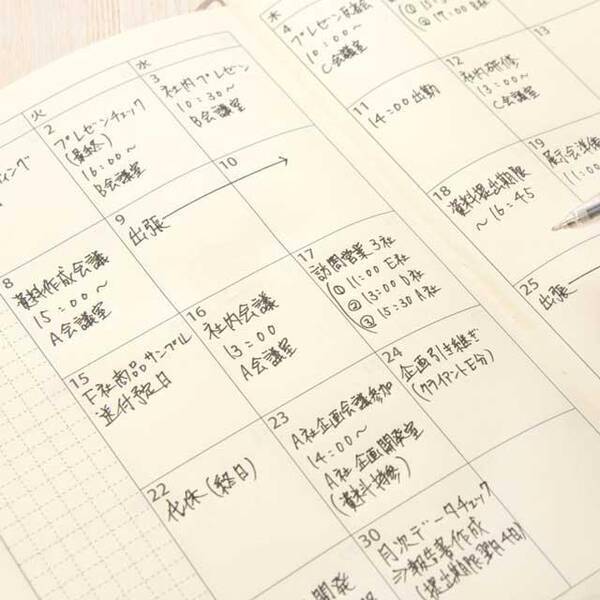 火
水
木
ィング
2
プレゼンチェック
(最終)
16:00~
B会議室
3
社内プレゼン
10:30~
B会議室
4
プレゼン反省会
10:00~
C会議室
8
資料作成会議
15:00~
A会議室
9
出張
10
11
14:00出勤
12
社内研修
13:00~
C会議室
13
15
F社商品サンプル
送付予定日
16
社内会議
13:00
A会議室
17
訪問営業3社
① 11:00 E社
② 13:00 D社
③ 15:30 A社
18
資料提出期限
~16:45
19
展示会準備
11:00
22
代休(終日)
23
A社企画会議参加
14:00~
A社 企画開発室
(資料持参)
24
企画引き継ぎ
(クライアントE分)
25
出張
開発
30
月次データチェック
⇒報告書作成
(提出期限翌月4日)